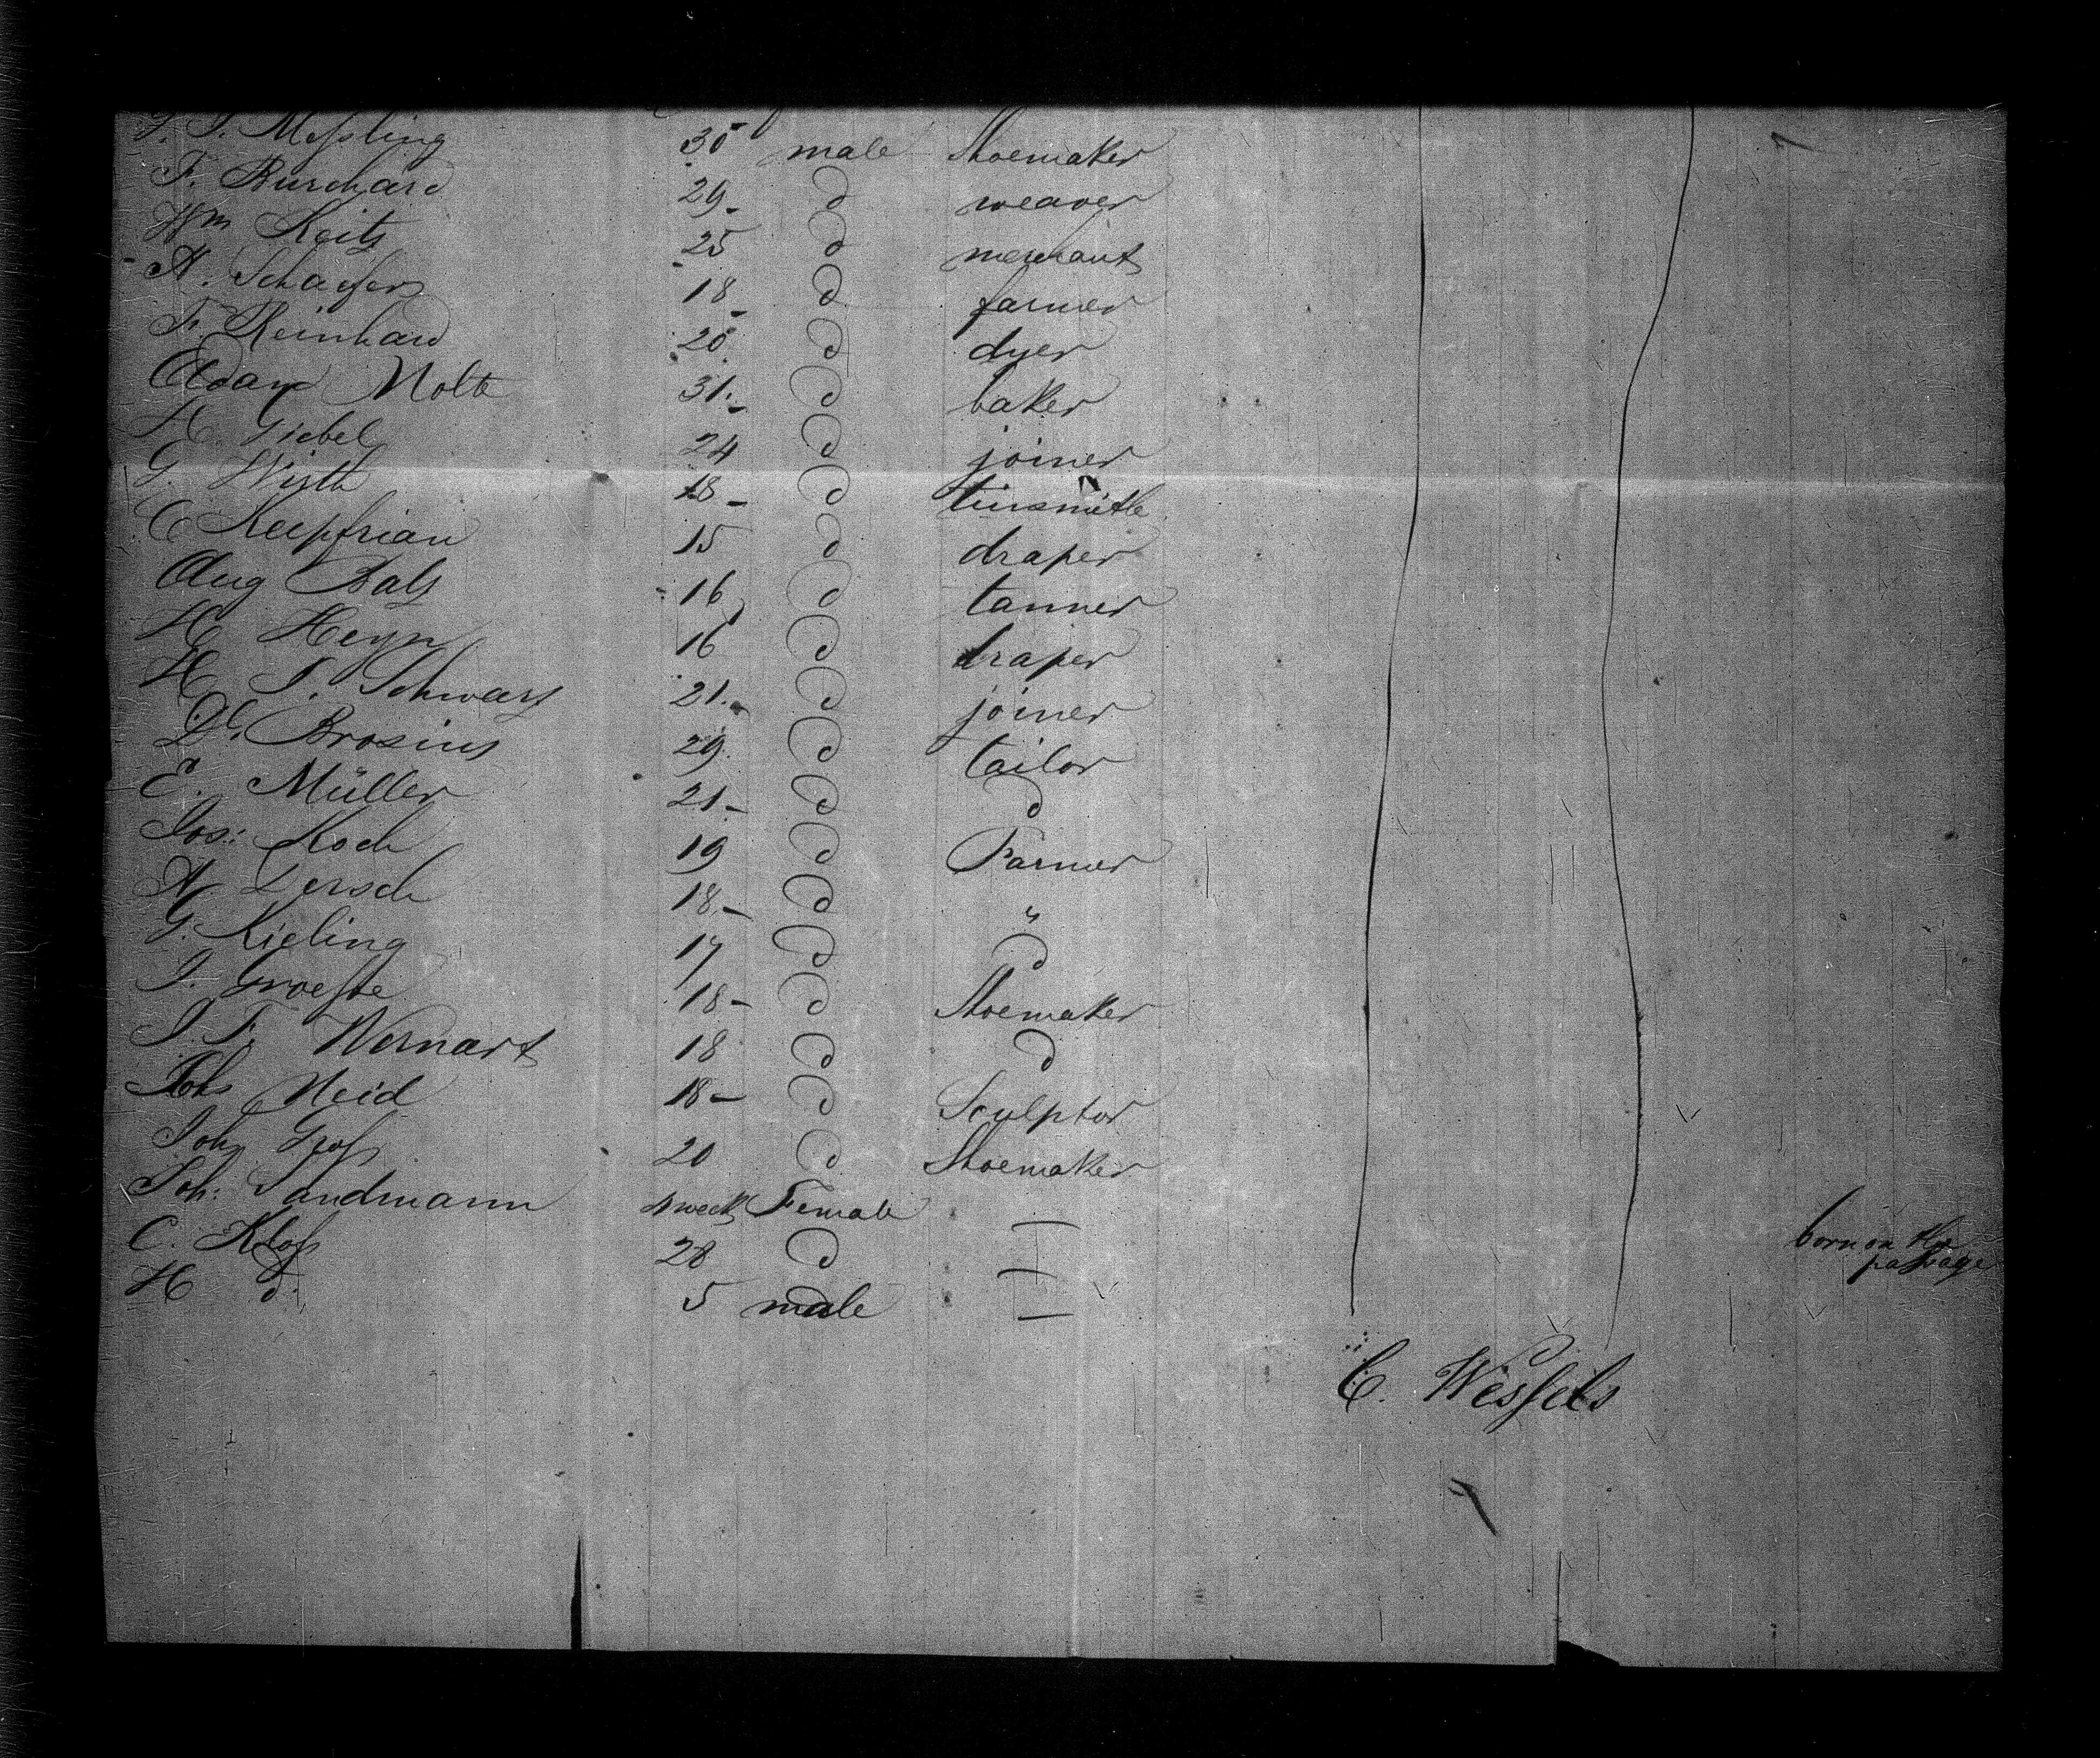 Messling 30 male Shoemaker
F. Burchard 29 d weaver
Wm Keitz 25 d merchant
A. Schaefer 18 d farmer
F. Reinhard 20 d dyer
Adam Nolte 31. d baker
H. Giebel 24 d joiner
G. Wirth 18 d tinsmith
C Keepfrian 15 d draper
Aug Balz 16 d tanner
H Heyn 16 d draper
H J. Schwarz 21. d joiner
Brosius 29. d tailor
E. Müller 21 d d
Jos: Koch 19 d Farmer
A Lersch 18 d "
G. Kieling 17 d d
J. Groesse 18 d Shoemaker
J. F. Wernart 18 d d
Johs Neid 18 d Sculptor
John Gross 20 d Shoemaker
Joh: Sandmann 4 weeks Female — born on the
passage
C. Kloss 28 d —
H d. 5 male —
C. Wessels